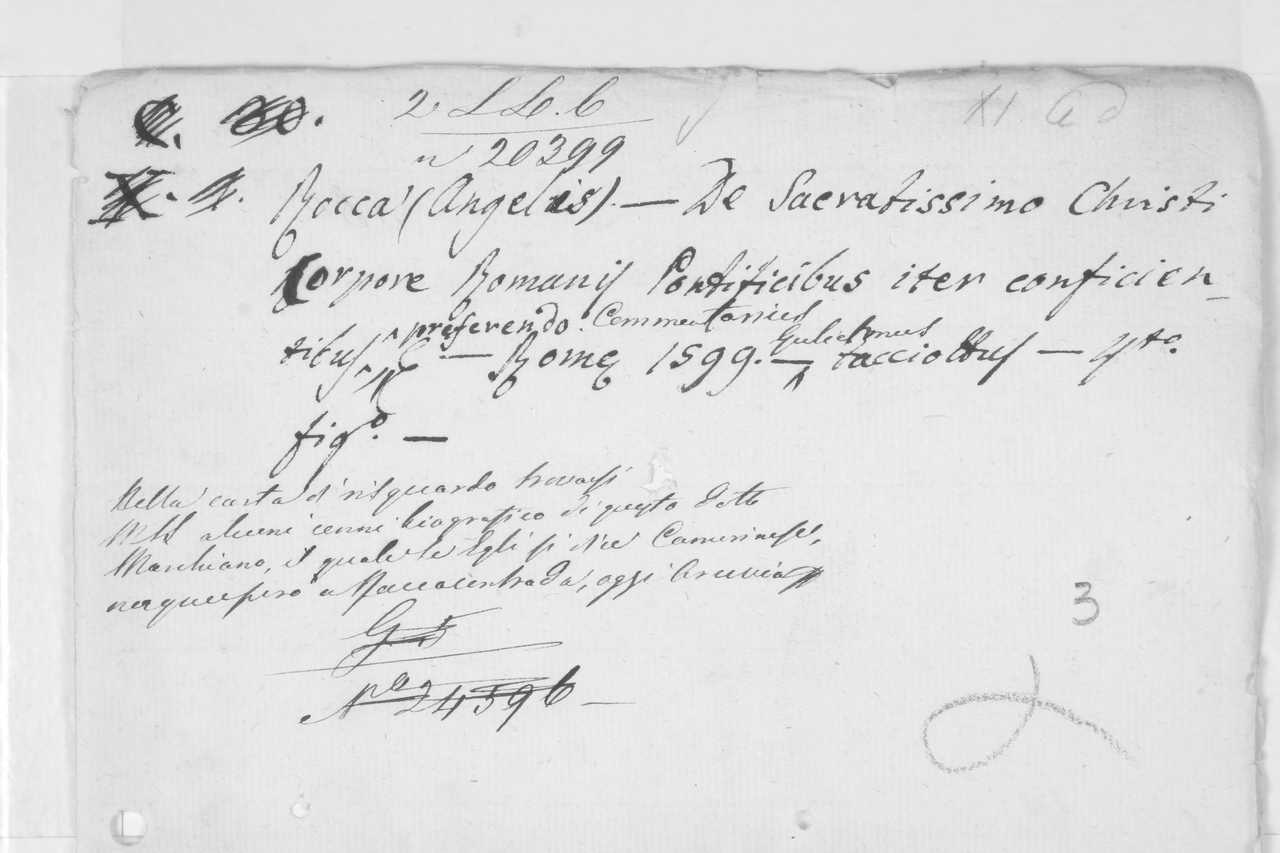 2 LL. b
n 20399
XI
Rocca (Angelis). — De Sacratissimo Christi
Corpore Romanis Pontificibus iter conficien_
tibus preferendo Commentarius — Rome 1599. — Gulielmus Facciottus — 4to.
figo. —
Nella carta di risguardo trovasi
MS alcuni cenni biografico di questo dotto
Marchiano, il quale se Egli si dice Camerinese,
nacque però a Roccacontrada, oggi Arcevia
G 5
Nro 24596 —
3